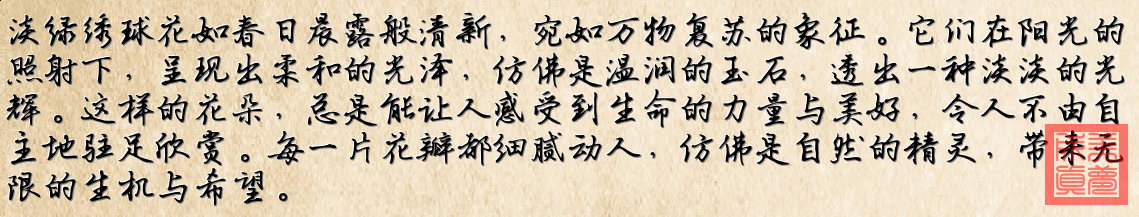 淡绿绣球花如春日晨露般清新，宛如万物复苏的象征。它们在阳光的
照射下，呈现出柔和的光泽，仿佛是温润的玉石，透出一种淡淡的光
辉。这样的花朵，总是能让人感受到生命的力量与美好，令人不由自
主地驻足欣赏。每一片花瓣都细腻动人，仿佛是自然的精灵，带来无
限的生机与希望。